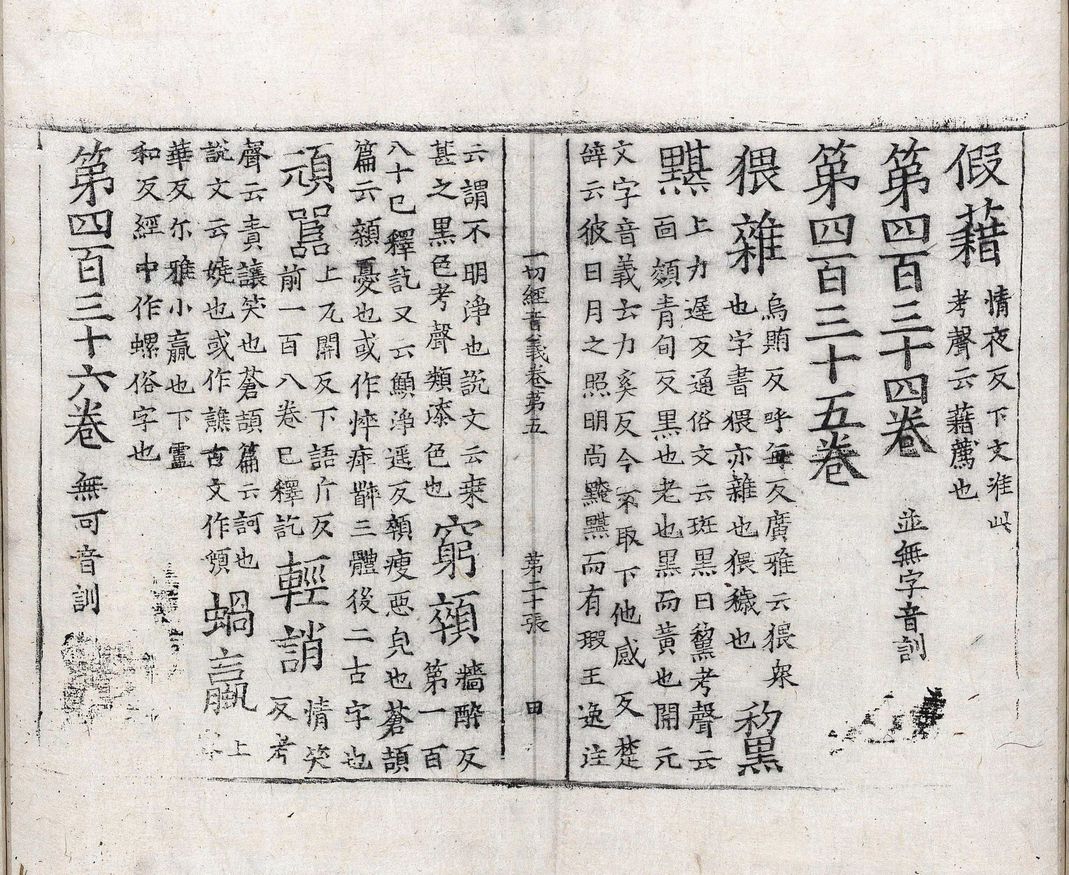 假藉 情夜反下文准此
考聲云藉薦也
第四百三十四卷 並無字音訓
第四百三十五卷
猥雜 烏賄反呼每反廣雅云猥衆
也字書猥亦雜也猥穢也 黧
黮 上力遲反通俗文云斑黑曰黧考聲云
面纇青旬反黑也老也黑而黃也開元
文字音義云力奚反今不取下他感反楚
辝云彼日月之照明尚黯黮而有瑕王逸注
一切經音義卷第五 第二十張 田
云謂不明淨也說文云桒
甚之黑色考聲類漆色也 窮顇 牆醉反
第一百
八十已釋訖又云顦淨遥反顇瘦惡皃也蒼頡
篇云顇憂也或作悴瘁三體後二古字也
頑嚚 上瓦關反下語斤反
前一百八卷已釋訖 輕誚 情笑
反考
聲云責讓笑也蒼頡篇云訶也
說文云嬈也或作譙古文作 蝸蠃 上
華反尒雅小蠃也下盧
和反經中作螺俗字也
第四百三十六卷 無可音訓